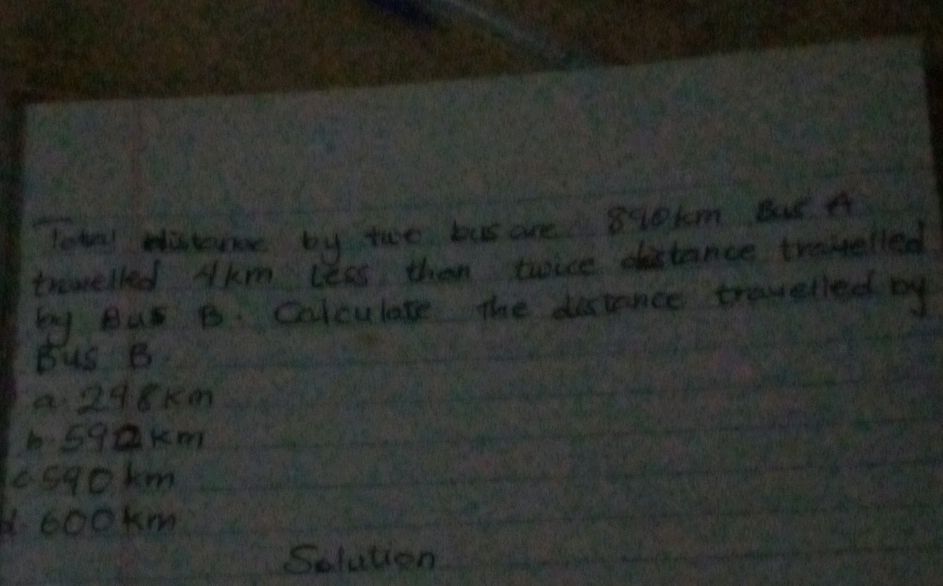 Total distance by two bus are 890km Bus A
travelled 4km Less than twice distance travelled
by Bus B. Calculate The distance travelled by
Bus B.
a. 298km
b. 592km
c 590 km
d. 600km
Solution